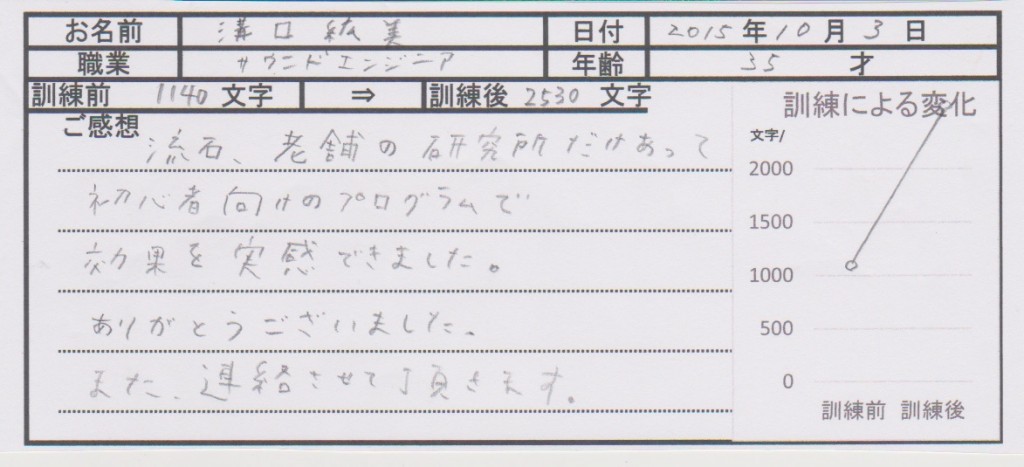 お名前 溝口紘美 日付 2015年10月3日
職業 サウンドエンジニア 年齢 35 才
訓練前 1140 文字 ⇒ 訓練後 2530 文字
ご感想
流石、老舗の研究所だけあって
初心者向けのプログラムで
効果を実感できました。
ありがとうございました。
また、連絡させて頂きます。
訓練による変化
文字/
2000
1500
1000
500
0
訓練前 訓練後